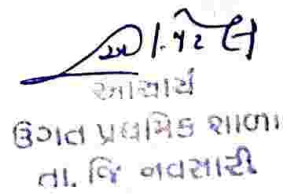 આચાર્ય
ઉગત પ્રાથમિક શાળા
તા. જિ નવસારી